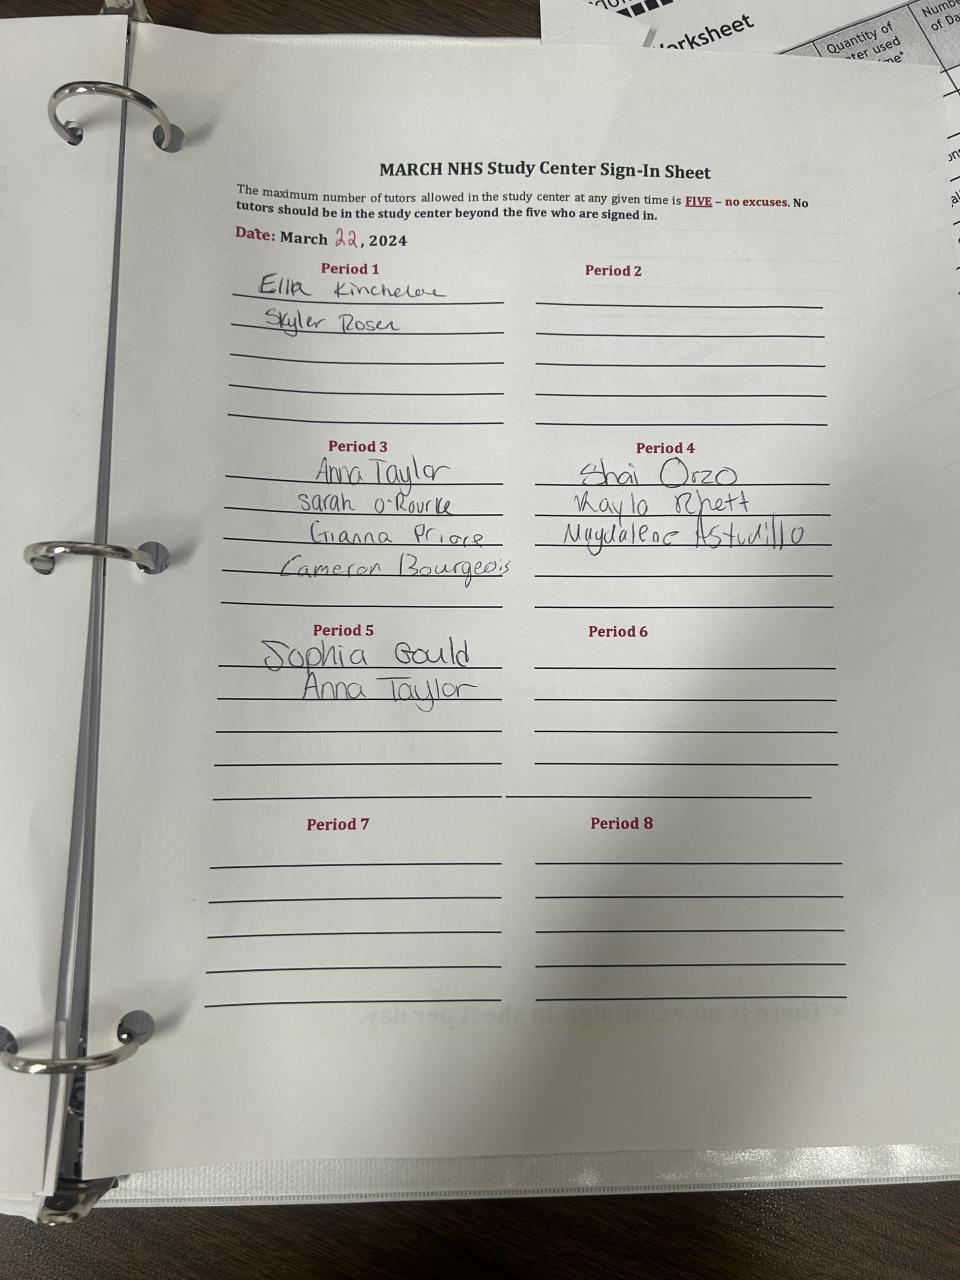 orksheet
Quantity of
ter used
me*
Numb
of Da
MARCH NHS Study Center Sign-In Sheet
The maximum number of tutors allowed in the study center at any given time is FIVE – no excuses. No
tutors should be in the study center beyond the five who are signed in.
Date: March 22, 2024
Period 1
Ella Kincheloe
Skyler Rosen
Period 2
Period 3
Anna Taylor
Sarah O'Rourke
Gianna Priore
Cameron Bourgeois
Period 4
Shai Orzo
Kayla Rhett
Magdalene Astudillo
Period 5
Sophia Gould
Anna Taylor
Period 6
Period 7
Period 8
* There is now ONE sign-in sheet per day.